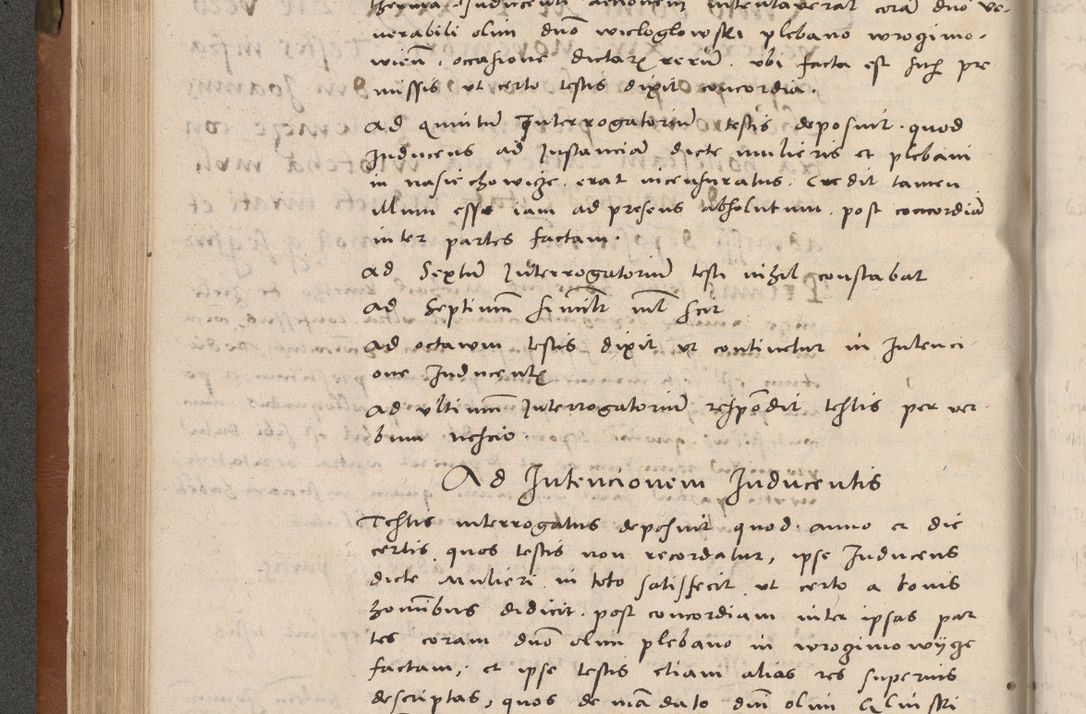 Inducenti actionem intentaverat coram dno ve-
nerabili olim dno wieloglowski plebano wrogimo-
wien. occasione dictarum rerum. ubi facta est pre
missis ut certo testis dixit concordia.
Ad quintum Interrogatorium testis deposuit. quod
Inducens ad Instanciam dicte mulieris et plebani
in nasiechowicze. erat incensuratus. Credit tamen
illum esse iam ad presens absolutum. post concordiam
inter partes factam.
Ad Sextum Interrogatorium testi nihil constabat
Ad Septimum similiter nihil scit
Ad octavum testis dixit ut continetur in Intenci
one Inducentis
Ad ultimum Interrogatorium respondit testis per ver-
bum nescio.
Ad Intencionem Inducentis
Testis interrogatus deposuit quod anno et die
certis quos testis non recordatur, ipse Inducens
dicte Mulieri in toto satisfecit ut certo a bonis
hominibus didicit. post concordiam inter ipsas par
tes coram dno olim plebano in wrogimowycze
factam, et ipse testis etiam alias res superius
descriptas, quos de mandato dni olim Glinski